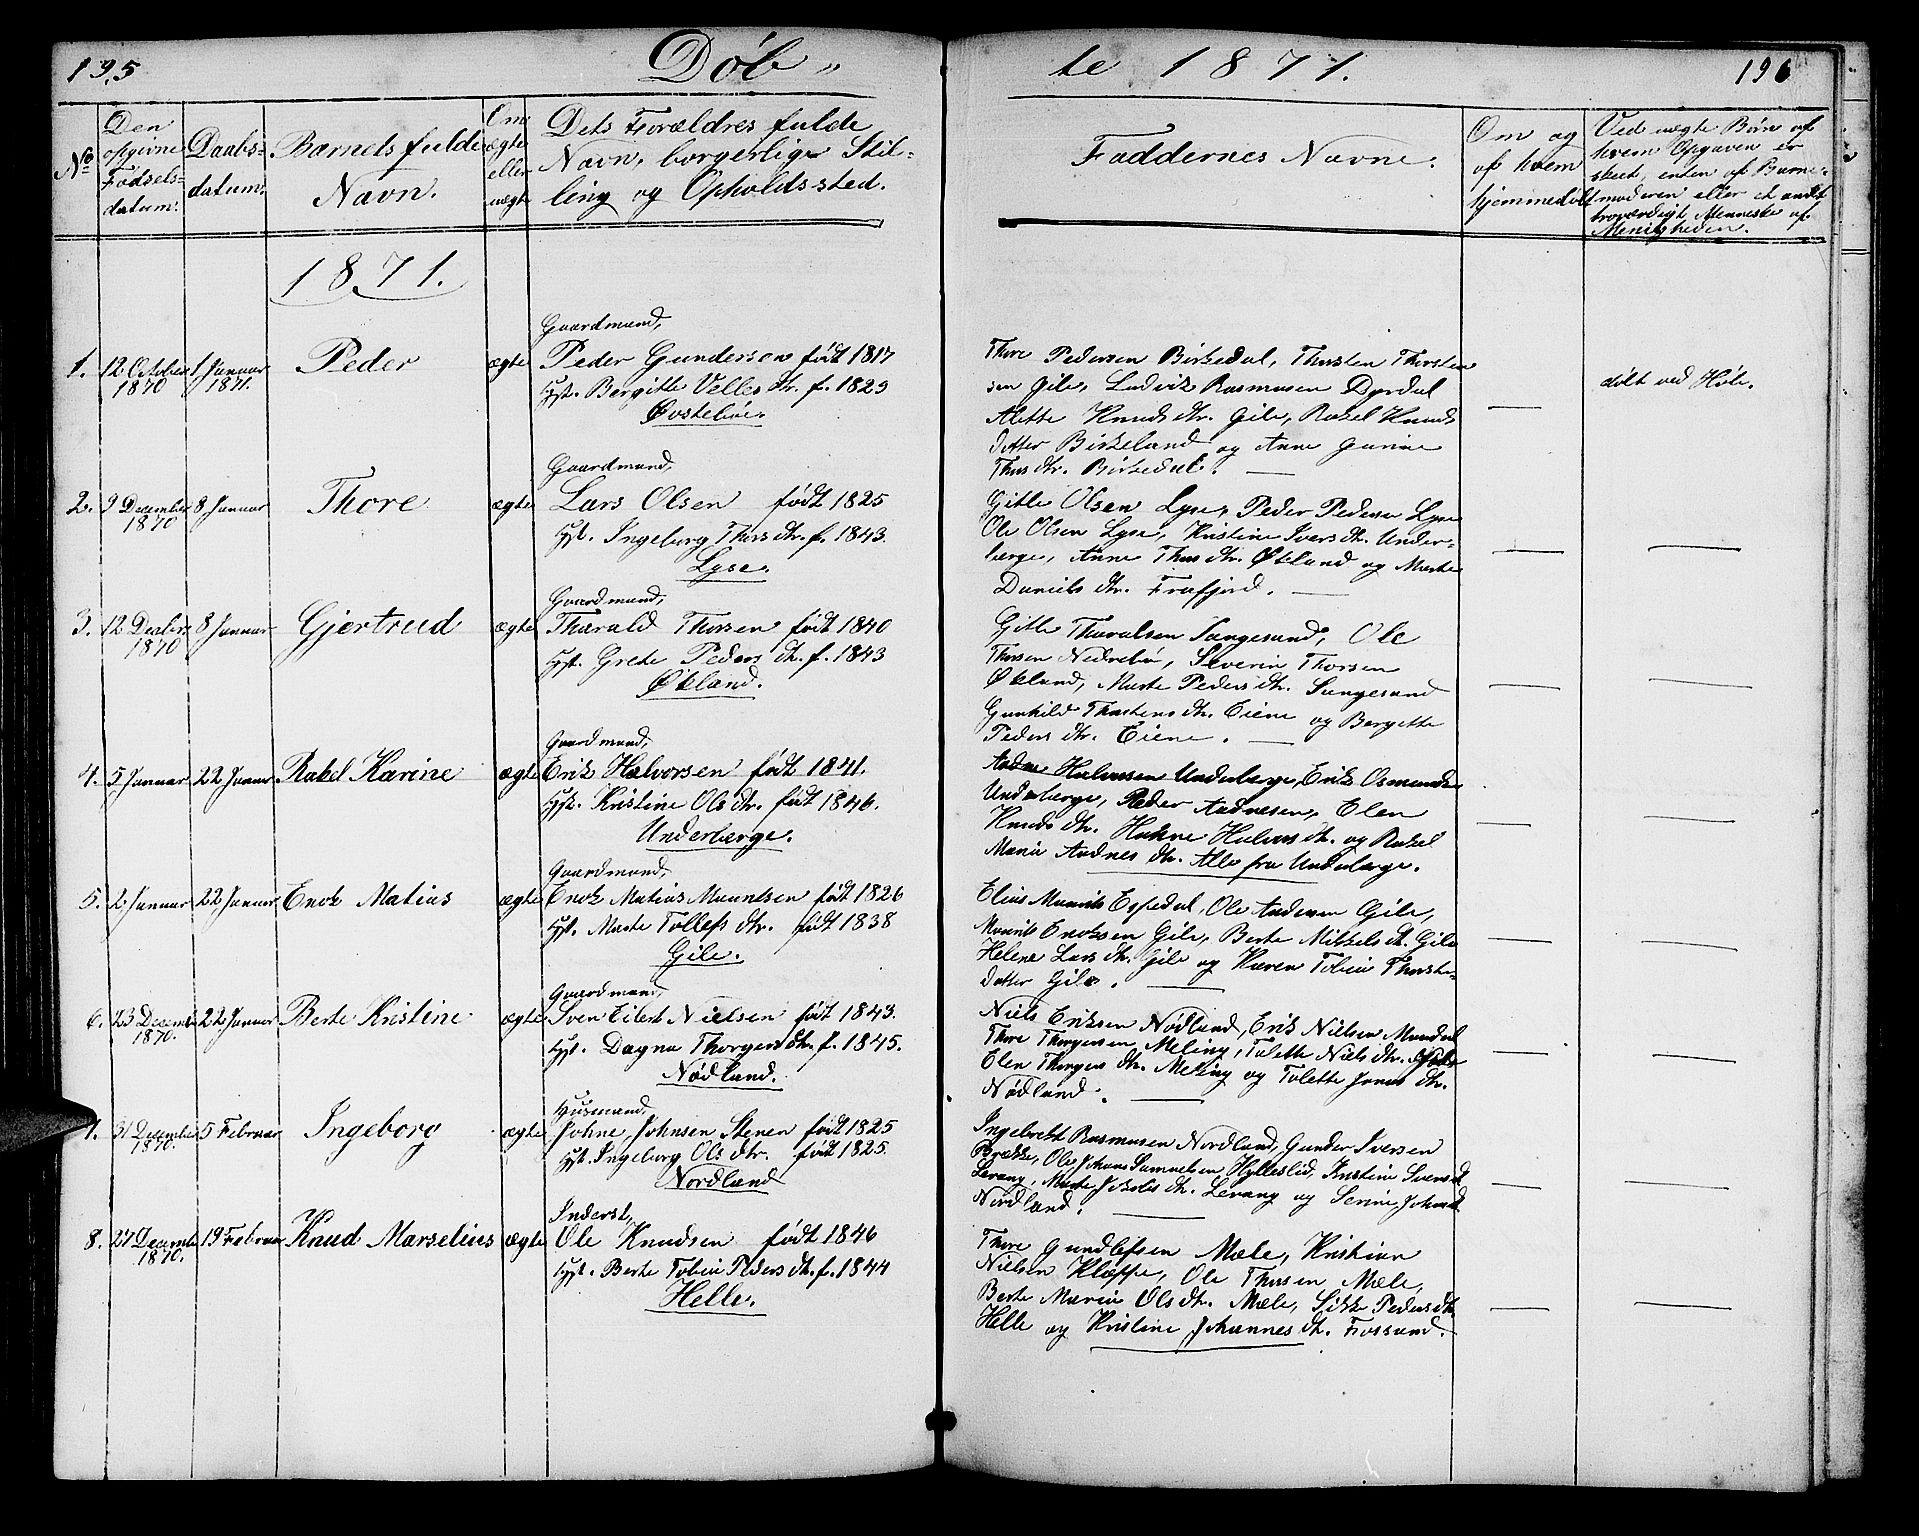 195
Døb„
te 1871.
196
No
Den opgivne Fødsels-datum.
Daabs-datum.
Barnets fulde Navn.
Om ægte eller uægte
Dets Forældres fulde Navn, borgerlige Stil-ling og Opholdssted.
Faddernes Navne.
Om og af hvem hjemmedøbt
Ved uægte Børn af hvem Opgaven er skeet, enten af Barne-moderen eller et andet troværdigt Menneske af Menigheden.
1871.
Gaardmand,
1. 12 October 1870 1 Januar 1871. Peder ægte Peder Gunderson født 1817
Hst. Bergitte Velles dtr. f. 1829
Østebøe.
Thore Pedersen Birkedal, Thorsten Thorsten
sen Gile, Ludvik Rasmusen Dyrdal
Alette Knuds dtr. Gile, Rakel Knuds
datter Birkeland og Anne Gurine
Thors dtr. Birkedal.
døbt ved Høle.
Gaardmand,
2. 9 December 1870 8 Januar Thore ægte Lars Olsen født 1825
Hst. Ingeborg Thors dtr. f. 1843.
Lyse.
Gitle Olsen Lyse, Peder Pedersen Lyse
Ole Olsen Lyse, Kristine Ivers dt. Under-
berge, Anne Thors dtr. Økland og Marte
Daniels dtr. Frafjord.
Gaardmand,
3. 12 Decbers 1870 8 Januar Gjertrud ægte Tharald Thorsen født 1840
Hst. Grete Peders dt. f. 1843
Økland.
Gitle Tharalsen Sangesand, Ole
Thorsen Nedrebø, Severin Thorsen
Økland, Marte Peders dt. Sangesand
Gunhild Thorstens dt. Eiene og Bergette
Peders dt. Eiene.
Gaardmand,
4. 5 Januar 22 Januar Rakel Karine ægte Erik Halvorsen født 1841.
Hst. Kristine Ols dtr. født 1846.
Underberge.
Halvorsen Underberge, Erik Osmundsen
Underberge, Peder Andresen, Elen
Knuds dt. Halvors dt. og Rakel
Maria Andnes dt. Alle fra Underberge.
Gaardmand,
5. 2 Januar 22 Januar Enok Matias ægte Enok Matias Mauritsen født 1826
Hst. Marte Tollefs dtr. født 1838
Gile.
Elias Maurits Espedal, Ole Andersen Gile,
Maurits Enoksen Gile, Berte Mikkels dt. Gile
Helene Lars dt. Gile og Karen Tobia Thorste-
datter Gile.
Gaardmand,
6. 23 Decemb 1870. 22 Januar Berte Kristine ægte Sven Eilert Nielsen født 1843.
Hst. Dagna Thorgers dt. f. 1845.
Nødland.
Niels Eriksen Nødland, Erik Nielsen Mandal
Thore Thorgersen Meling, Tolette Niels dt.
Elen Thorgers dt. Meling og Tolette Jonas dt.
Nødland.
Husmand,
7. 31 December 1870. 5 Februar Ingeborg ægte Johne Johnsen Stenen født 1825
Hst. Ingeborg Ols dtr. født 1825.
Nordland
Ingebrekt Rasmusen Nordland, Gunder Iversen
Brække, Ole Johans Samuelsen Hylleslid, Kristine Svens dt
Levang, Marte Jakobs dt. Levang og Serine Johns dt
Nordland.
Inderst,
8. 27 Decemb 1870. 19 Februar Knud Marselius ægte Ole Knudsen født 1846
Hst. Berte Tobia Peders dt. f. 1844
Helle.
Thore Gundlefsen Mæle, Kristian
Nielsen Klæppe, Ole Thorsen Mæle,
Berte Maria Ols dt. Mæle, Sikke Peders dt.
Helle og Kristine Johannes dt. Fossand.